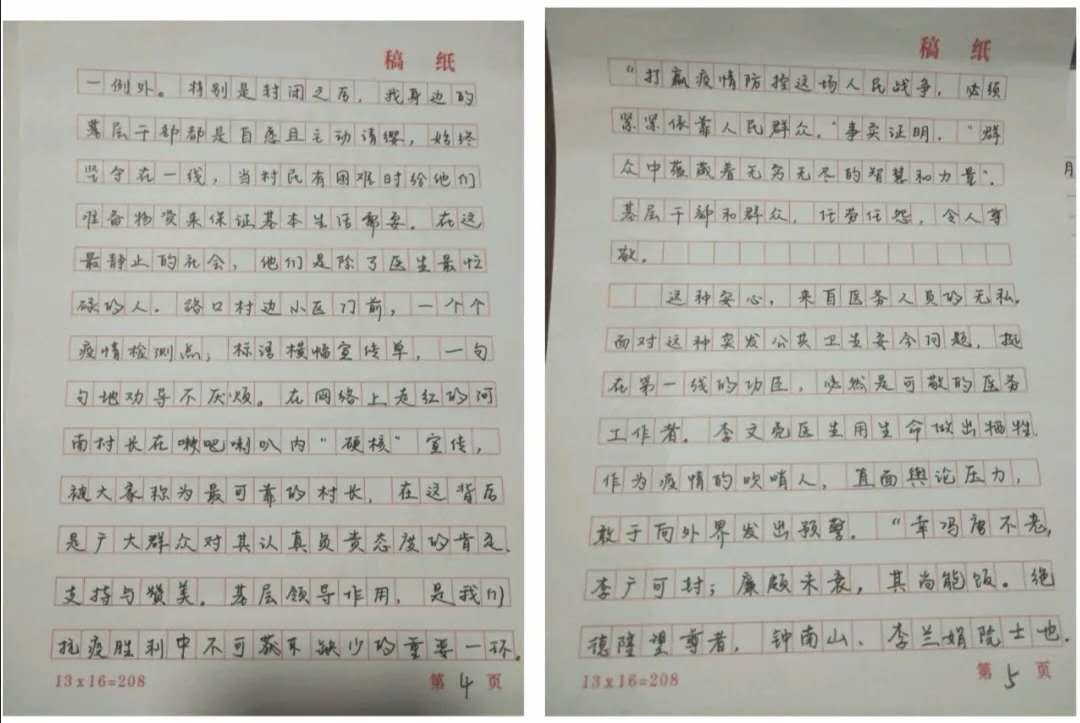 稿 纸
一例外。特别是封闭之后,我身边的
基层干部都是自愿且主动请缨,始终
坚守在一线,当村民有困难时给他们
准备物资来保证基本生活需要。在这
最静止的社会,他们是除了医生最忙
碌的人。路口村边小区门前,一个个
疫情检测点,标语横幅宣传单,一句
句地劝导不厌烦。在网络上走红的河
南村长在喇叭内“硬核”宣传,
被大家称为最可靠的村长,在这背后
是广大群众对其认真负责态度的肯定、
支持与赞美。基层领导作用,是我们
抗疫胜利中不可或缺少的重要一环。
13x16=208
第 4 页
稿 纸
“打赢疫情防控这场人民战争,必须
紧紧依靠人民群众。”事实证明,“群
众中蕴藏着无穷无尽的智慧和力量”。
基层干部和群众,任劳任怨,令人尊
敬。
这种安心,来自医务人员的无私。
面对这种突发公共卫生安全问题,挺
在第一线的功臣,必然是可敬的医务
工作者。李文亮医生用生命做出牺牲,
作为疫情的吹哨人,直面舆论压力,
敢于向外界发出预警。“幸冯唐不老,
李广可封;廉颇未衰,其尚能饭。绝
德隆望尊者,钟南山、李兰娟院士也。
13x16=208
第 5 页
月